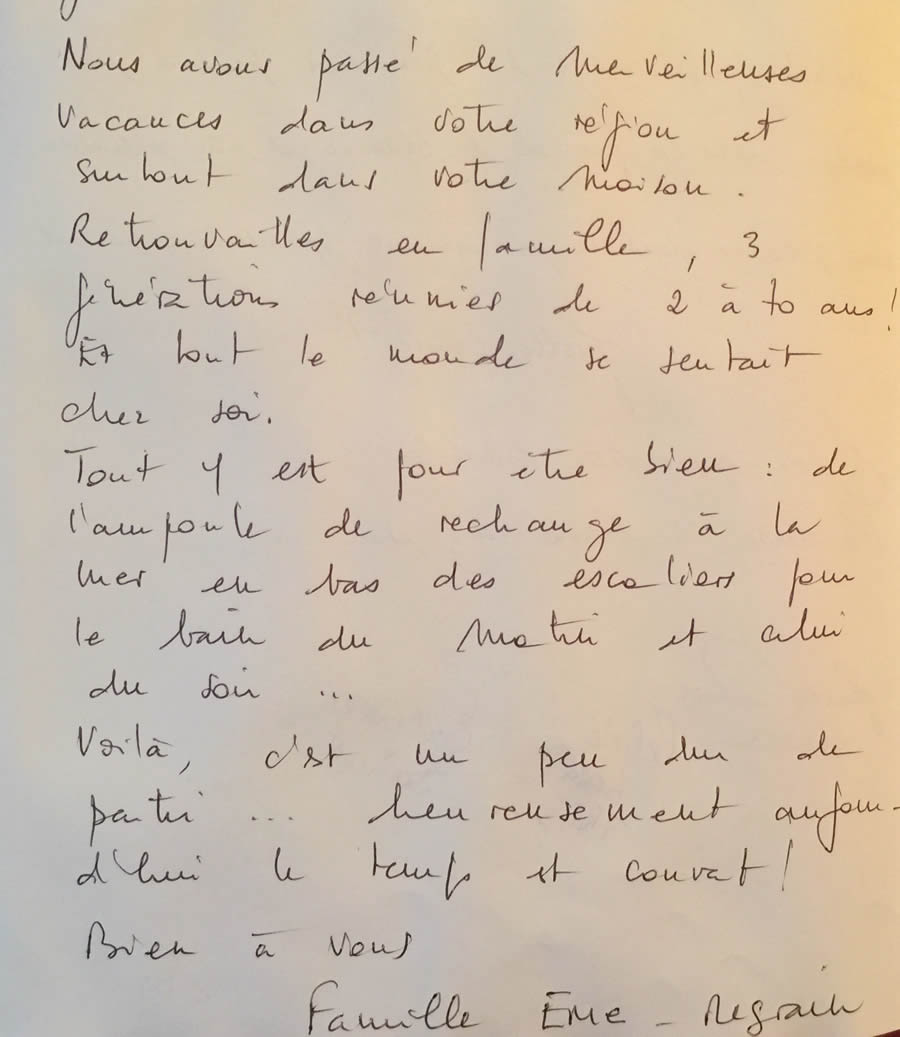 Nous avons passé de merveilleuses
vacances dans votre région et
surtout dans votre maison.
Retrouvailles en famille, 3
générations réunies de 2 à 70 ans !
Et tout le monde se sentait
chez soi.
Tout y est pour être bien : de
l'ampoule de rechange à la
mer en bas des escaliers pour
le bain du matin et celui
du soir ...
Voilà, c'est un peu dur de
partir ... heureusement aujour-
d'hui le temps est couvert !
Bien à vous
Famille Eme -